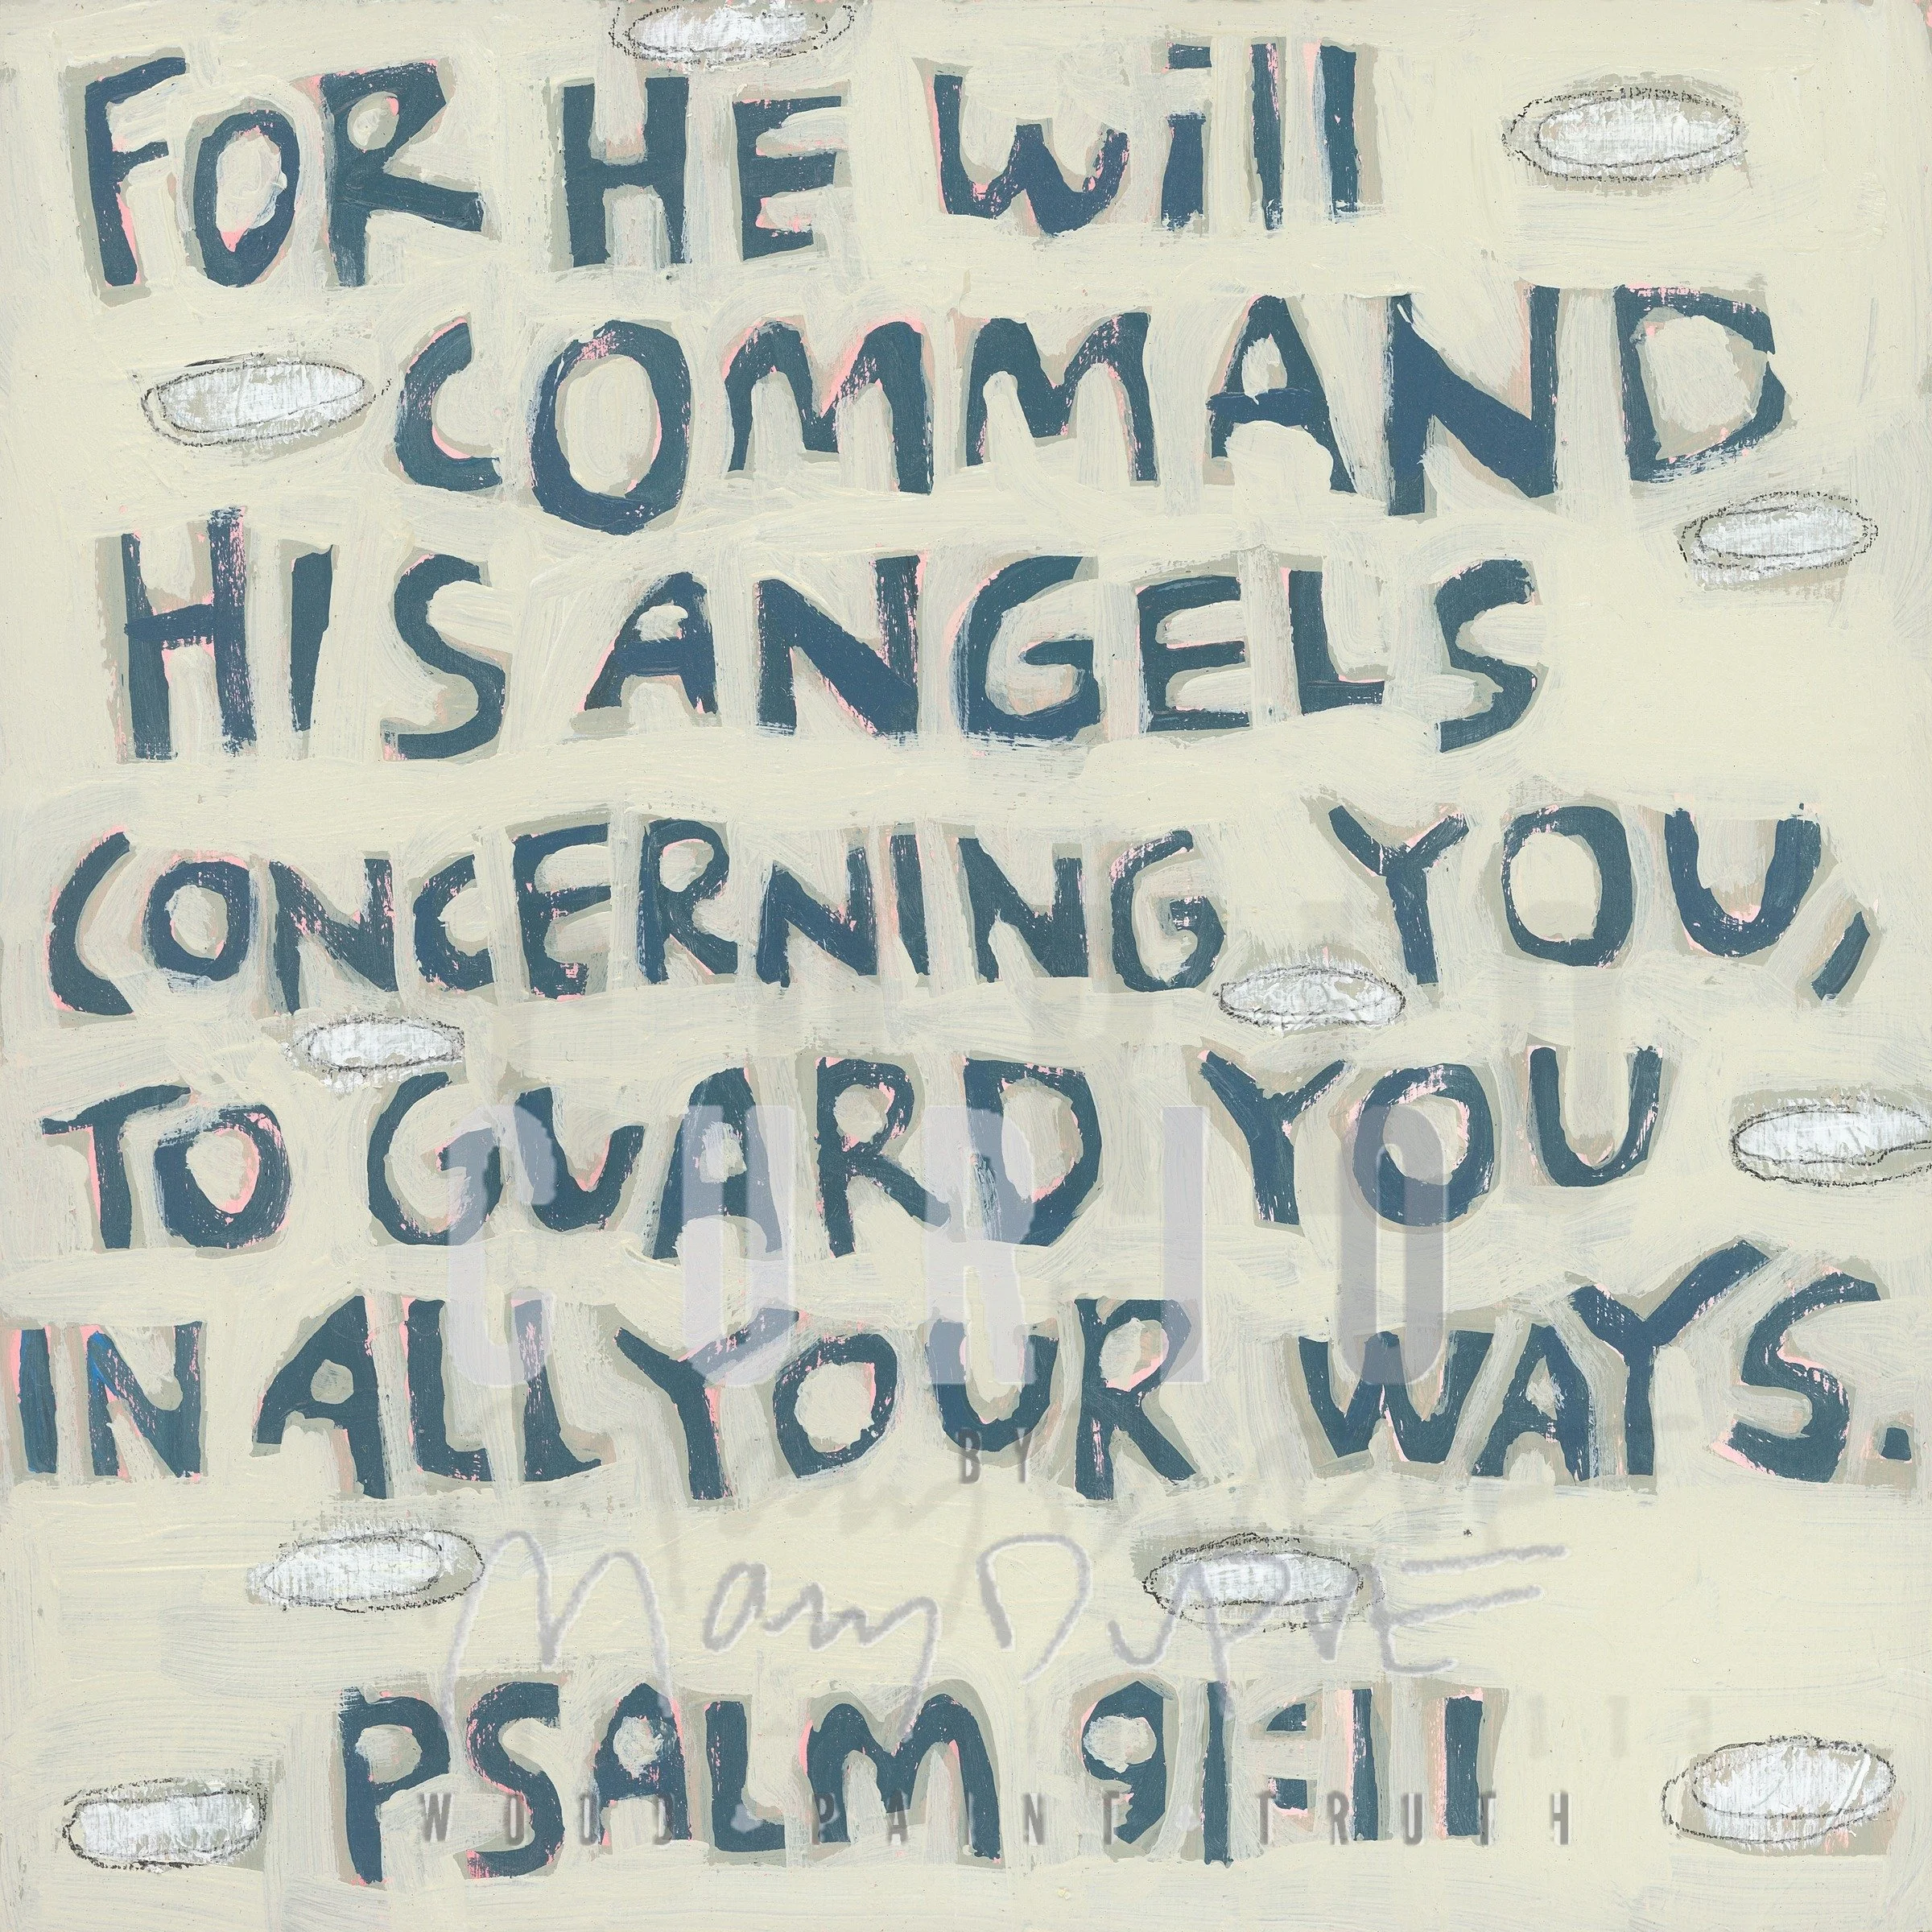 FOR HE will
COMMAND
HIS ANGELS
CONCERNING YOU,
TO GUARD YOU
CURIO
IN ALL YOUR WAYS.
BY
Mary DuPRE
PSALM 91:11
WOOD • PAINT • TRUTH